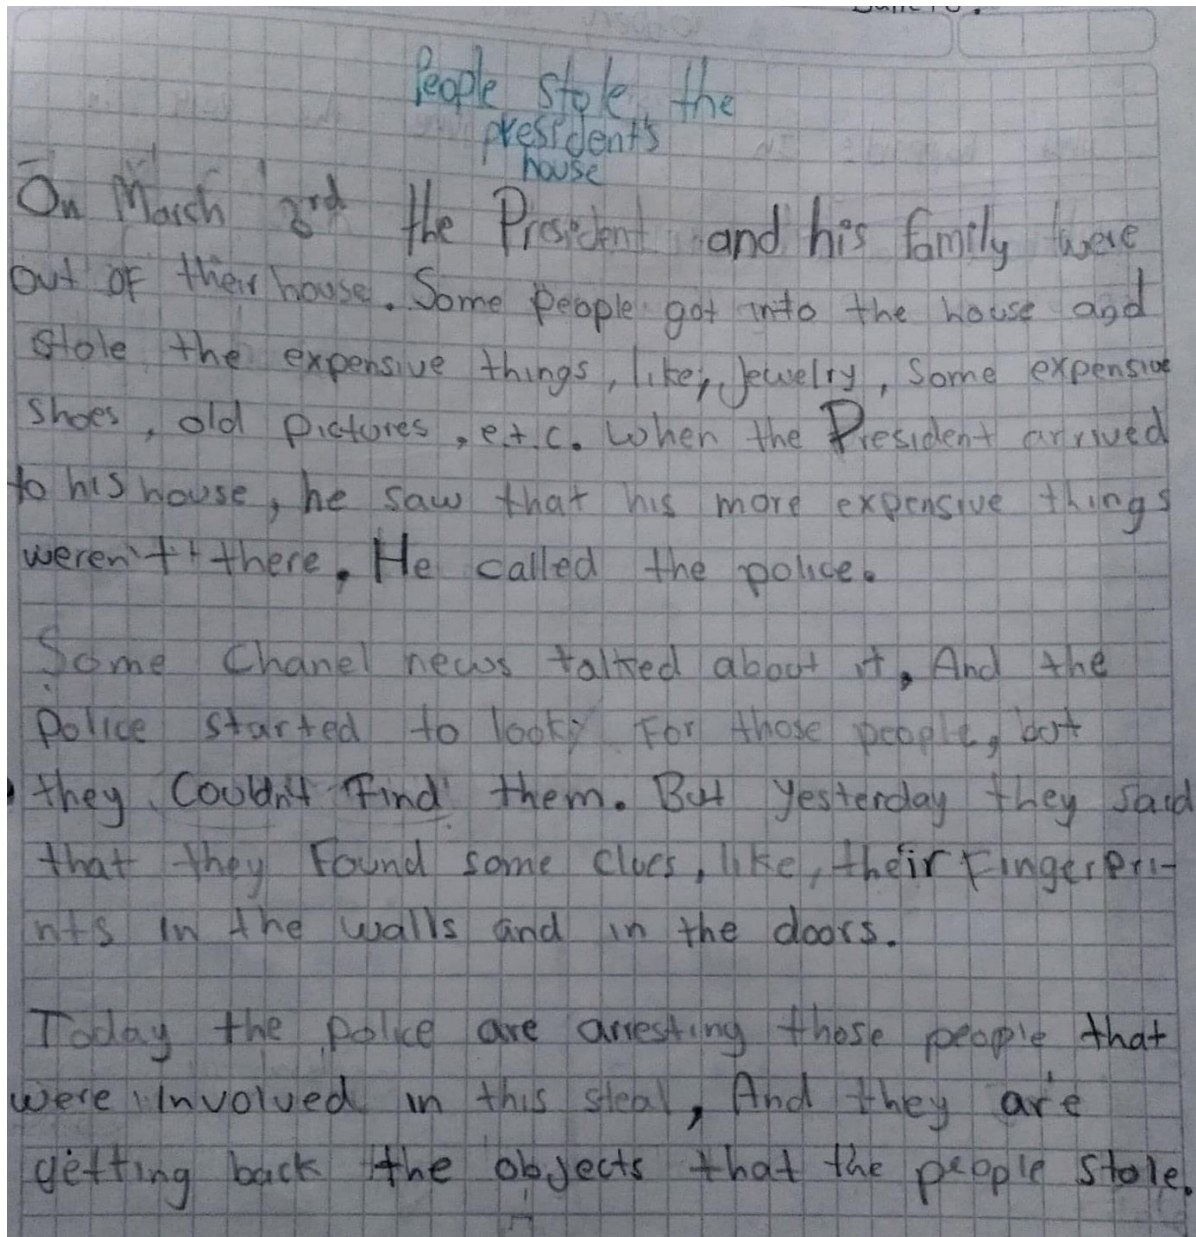 People stole the
president's
house
On March 3rd the President and his family were
out of their house. Some people got into the house and
stole the expensive things, like, Jewelry, some expensive
shoes, old pictures, e.t.c. When the President arrived
to his house, he saw that his more expensive things
weren't there. He called the police.
Some Chanel news talked about it, And the
police started to look for those people, but
they Couldn't Find them. But yesterday they said
that they Found some clues, like, their Fingerpri-
nts in the walls and in the doors.
Today the police are arresting those people that
were involved in this steal, And they are
getting back the objects that the people stole.